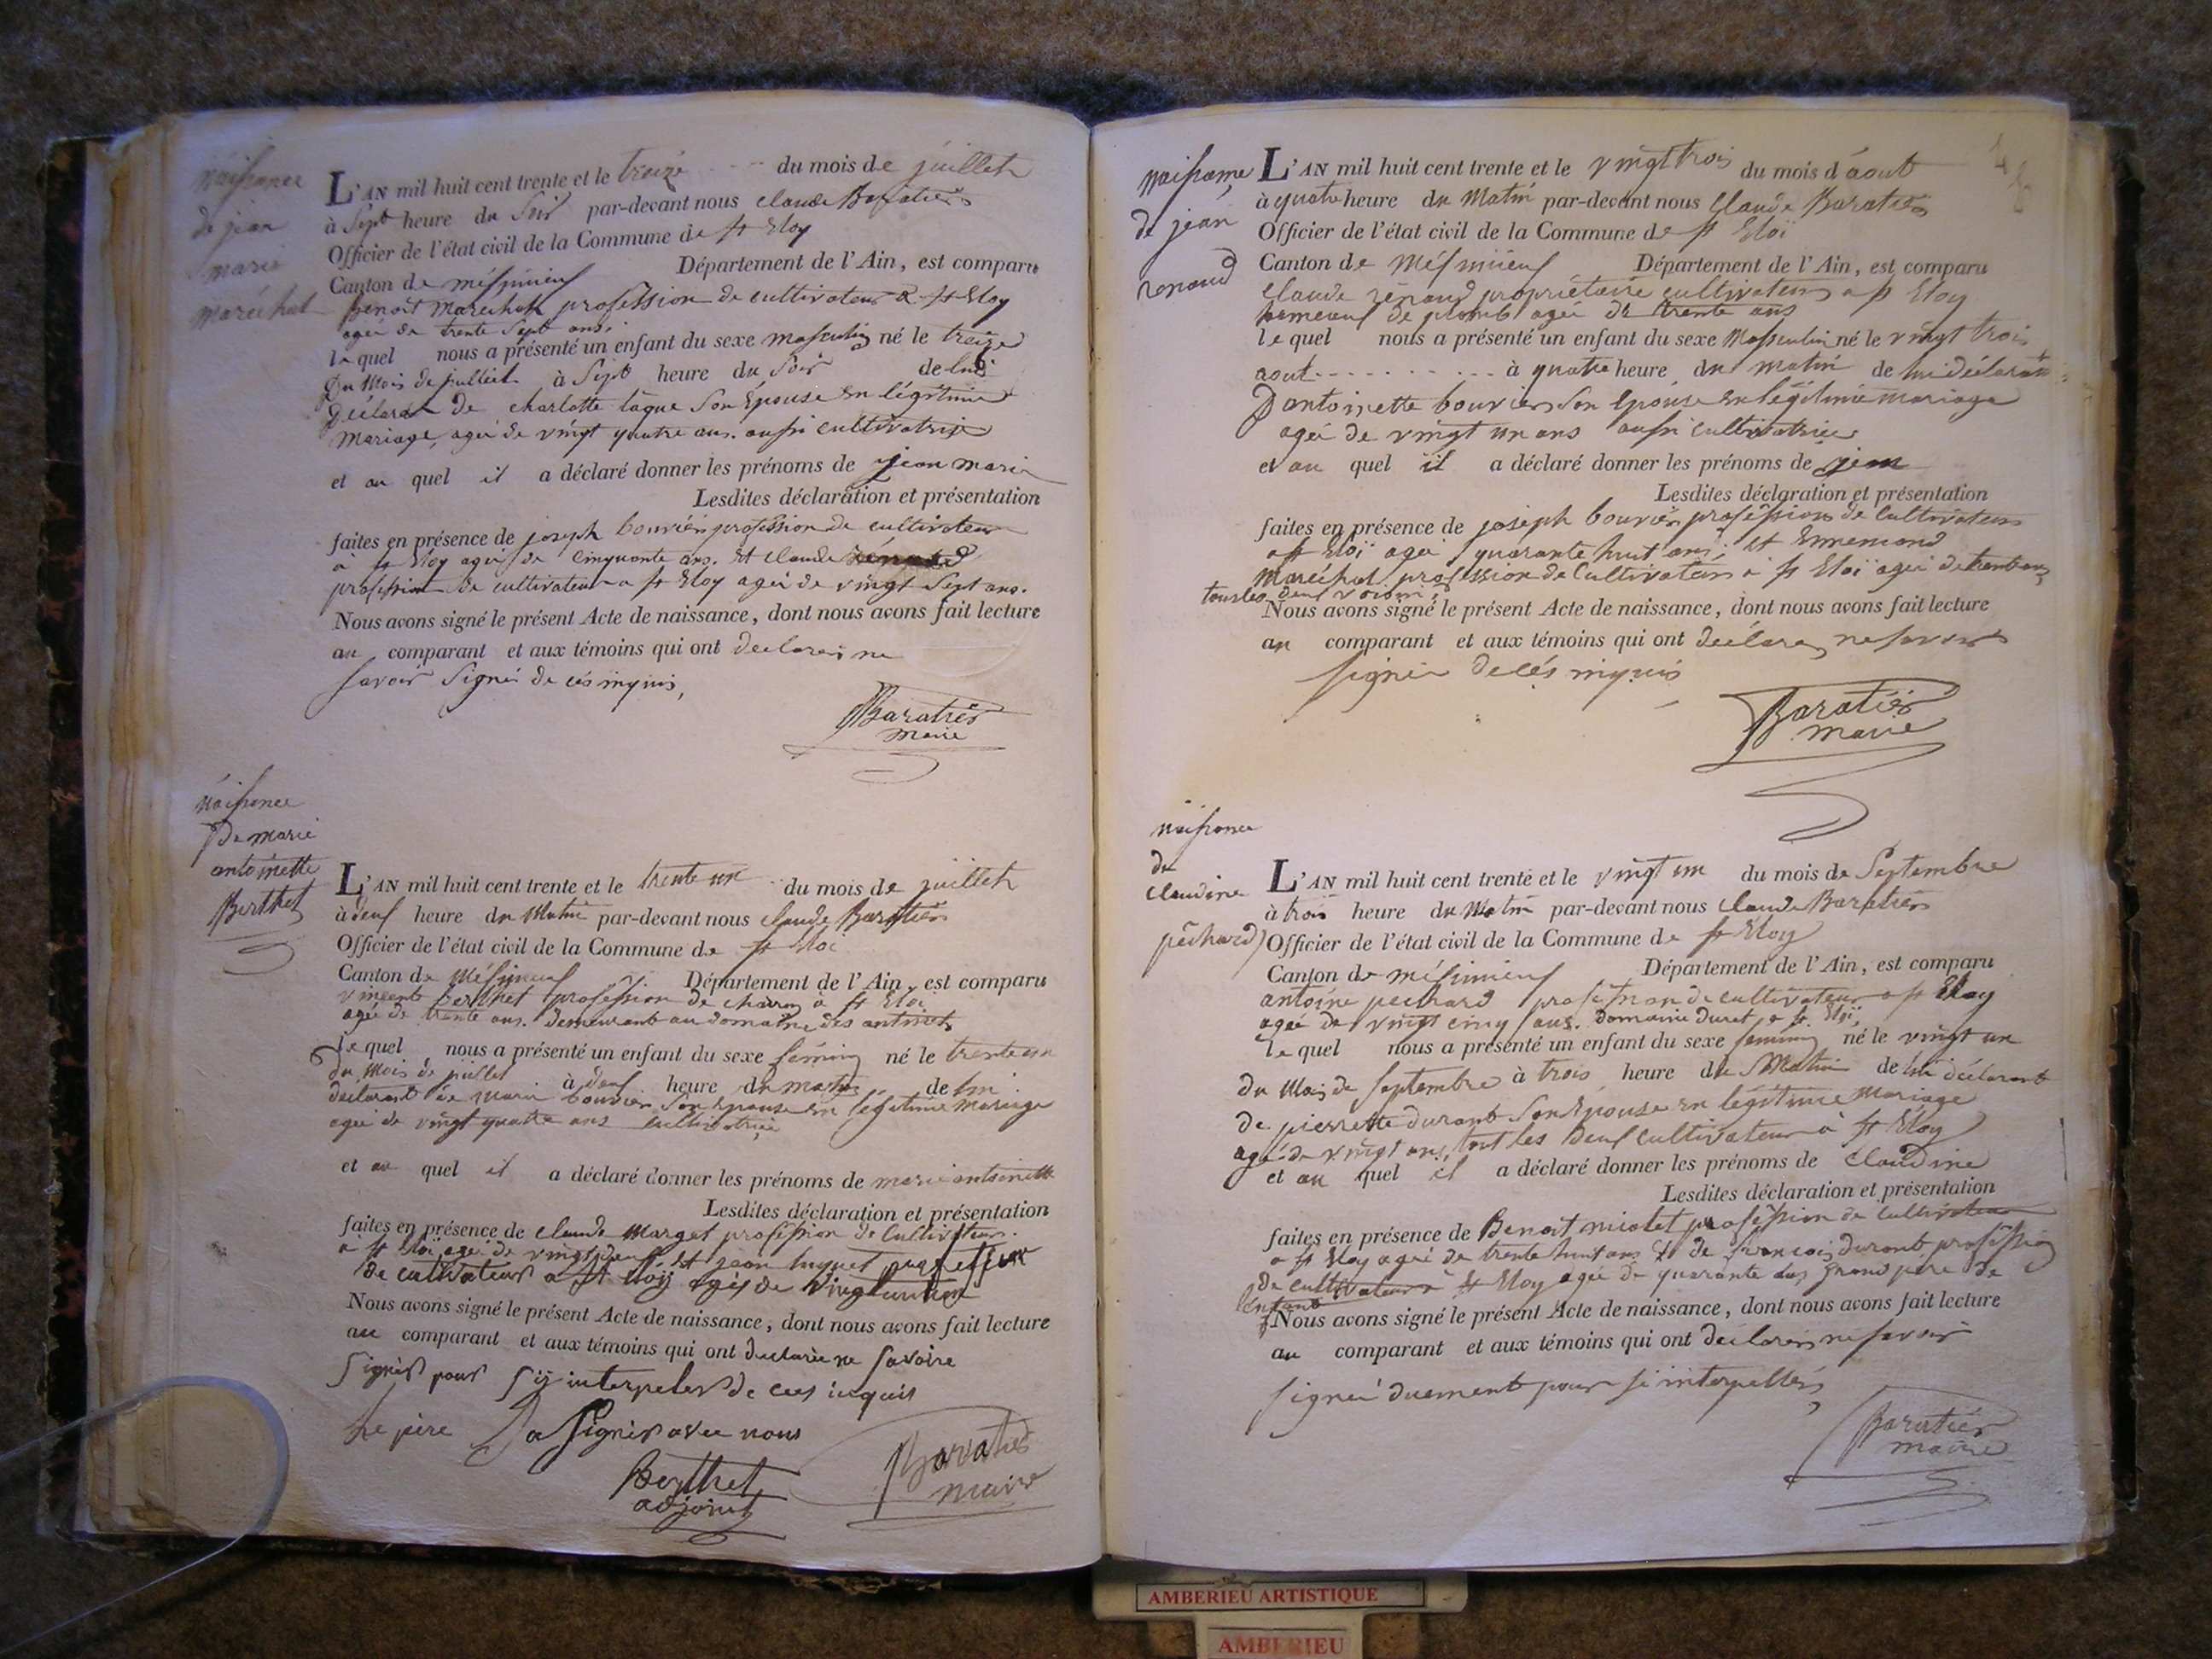 naissance
de jean
marie
maréchal
L'AN mil huit cent trente et le treize du mois de juillet
à sept heure du soir par-devant nous claude Baratier
Officier de l'état civil de la Commune de st Eloy
Canton de méximieux Département de l'Ain, est comparu
benoit Maréchal profession de cultivateur a st Eloy
agée de trente sept ans.
le quel nous a présenté un enfant du sexe masculin né le treize
du mois de juillet à sept heure du soir de lui
déclarant de charlotte laque son épouse en légitime
mariage, agée de vingt quatre ans. aussi cultivatrice
et au quel il a déclaré donner les prénoms de jean marie
Lesdites déclaration et présentation
faites en présence de joseph bouvier profession de cultivateur
à st Eloy agée de cinquante ans. et claude
profession de cultivateur a st Eloy agée de vingt sept ans.
Nous avons signé le présent Acte de naissance, dont nous avons fait lecture
au comparant et aux témoins qui ont declarer ne
savoir signer de ces inquis,
Baratier
maire
naissance
De marie
antoinette
Berthet
L'AN mil huit cent trente et le trente un du mois de juillet
à deux heure du matin par-devant nous claude Baratier
Officier de l'état civil de la Commune de st Eloi
Canton de méximieux Département de l'Ain, est comparu
vincent Berthet profession de charon a st Eloi
agée de trente ans. demeurant au domaine des
le quel nous a présenté un enfant du sexe féminin né le trente un
du mois de juillet à deux heure du matin de lui
déclarant de marie bouvier son epouse en légitime mariage
agée de vingt quatre ans cultivatrice
et au quel il a déclaré donner les prénoms de marie antoinette
Lesdites déclaration et présentation
faites en présence de claude Marget profession de cultivateur.
à st Eloi agée de vingt deux et jean huguet
de cultivateur a st Eloÿ agés de
Nous avons signé le présent Acte de naissance, dont nous avons fait lecture
au comparant et aux témoins qui ont declarée ne savoire
signér pour sÿ interpeler de ces inquis
Le père a signér avec nous
Berthet
adjoint
Baratier
maire
naissance
de jean
renaud
L'AN mil huit cent trente et le vingt trois du mois d'aout
à quatre heure du Matin par-devant nous Claude Baratier
Officier de l'état civil de la Commune de st Eloï
Canton de Méximieux Département de l'Ain, est comparu
claude renaud propriétaire cultivateur a st Eloy
agée de trente ans
le quel nous a présenté un enfant du sexe Masculin né le vingt trois
aout à quatre heure du matin de lui déclarant
D'antoinette bouvier son Epouse en légitime mariage
agée de vingt un ans aussi cultivatrice
et au quel il a déclaré donner les prénoms de jean
Lesdites déclaration et présentation
faites en présence de joseph bouvier profession de cultivateur
a st Eloï agée quarante huit ans; et Ennemond
Maréchal profession de Cultivateur à st Eloï agée de trente ans
tous les deux voisins,
Nous avons signé le présent Acte de naissance, dont nous avons fait lecture
au comparant et aux témoins qui ont declarer ne savoir
signer de cés inquis
Baratier
maire
naissance
de
Claudine
péchard
L'AN mil huit cent trente et le vingt un du mois de Septembre
à trois heure du Matin par-devant nous claude Baratier
Officier de l'état civil de la Commune de st Eloy
Canton de méximieux Département de l'Ain, est comparu
antoine pechard profession de cultivateur a st Eloy
agée de vingt cinq ans. Domaine Duret, a st Eloï,
le quel nous a présenté un enfant du sexe feminin né le vingt un
du mois de septembre à trois heure du Matin de lui déclarant
de pierrette durant son Epouse en légitime Mariage
agée de vingt ans, tout les deux cultivateur à st Eloy
et au quel il a déclaré donner les prénoms de Claudine
Lesdites déclaration et présentation
faites en présence de Benoit miolet profession de cultivateur
a st Eloy agée de trente huit ans & de francois durant, profession
de cultivateur à st Eloy agée de quarante ans grand père de
l'enfant
Nous avons signé le présent Acte de naissance, dont nous avons fait lecture
au comparant et aux témoins qui ont declarer ne savoir
signer duement pour si interpellér,
Baratier
maire
AMBERIEU ARTISTIQUE
AMBERIEU